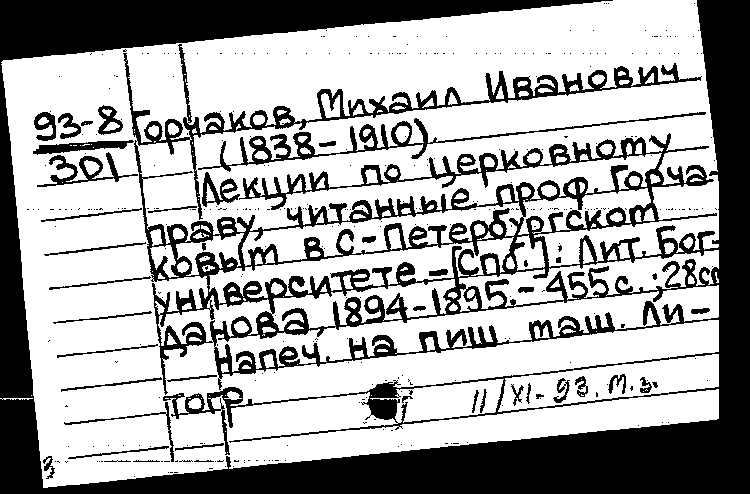 93-8 Горчаков, Михаил Иванович
301 (1838-1910).
Лекции по церковному
праву, читанные проф. Горча-
ковым в С.-Петербургском
университете.-[Спб.]: Лит. Бог-
данова, 1894-1895.- 455с.; 28см
Напеч. на пиш маш. Ли-
тогр.
11/XI-93. М.З.
3